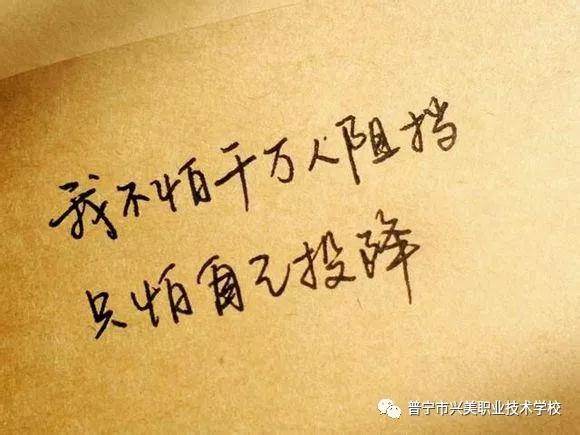 我不怕千万人阻挡
只怕自己投降
普宁市兴美职业技术学校